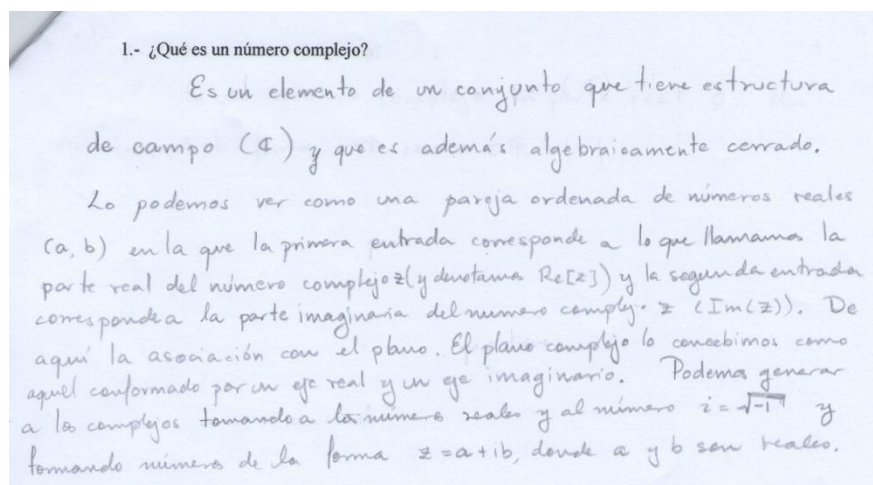 1.- ¿Qué es un número complejo?
Es un elemento de un conjunto que tiene estructura
de campo (ℂ) y que es además algebraicamente cerrado.
Lo podemos ver como una pareja ordenada de números reales
(a, b) en la que la primera entrada corresponde a lo que llamamos la
parte real del número complejo z (y denotamos Re[z]) y la segunda entrada
corresponde a la parte imaginaria del numero complejo z (Im(z)). De
aquí la asociación con el plano. El plano complejo lo concebimos como
aquél conformado por un eje real y un eje imaginario. Podemos generar
a los complejos tomando a los números reales y al número i = √-1 y
formando números de la forma z = a + ib, donde a y b son reales.